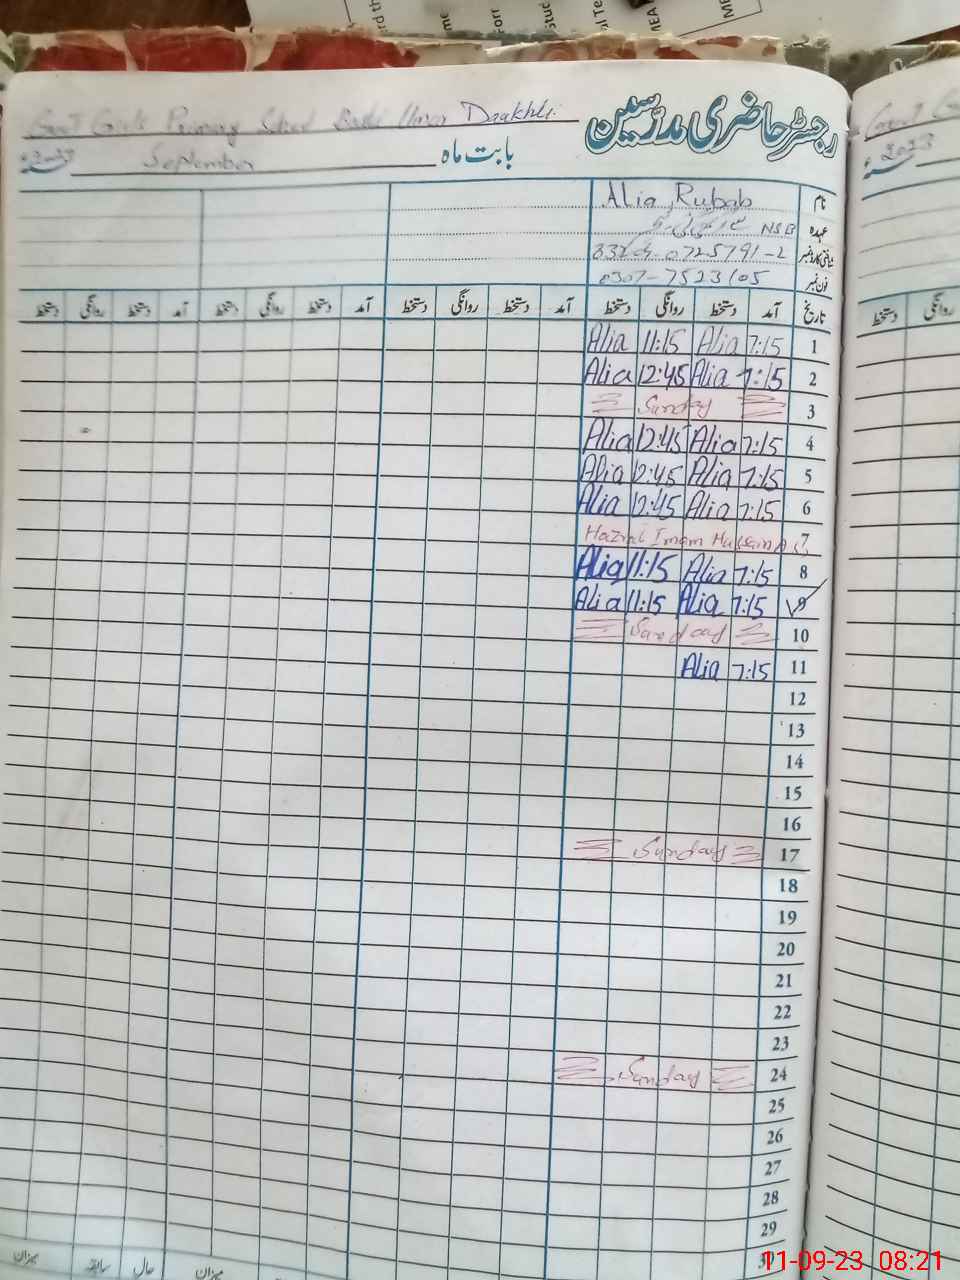 Govt Girls Primary School Umer Daakhli
رجسٹر حاضری مدرسین
2023 September بابت ماہ
نام Alia Rubab
عہدہ NSB
فون نمبر 0307-7523105
تاریخ آمد دستخط روانگی دستخط آمد دستخط روانگی دستخط آمد دستخط روانگی دستخط آمد دستخط روانگی دستخط
1 7:15 Alia 11:15 Alia
2 7:15 Alia 12:45 Alia
3 Sunday
4 7:15 Alia 12:45 Alia
5 7:15 Alia 12:45 Alia
6 7:15 Alia 12:45 Alia
7 Hazrat Imam Hussain A.S
8 7:15 Alia 11:15 Alia
9 7:15 Alia 11:15 Alia
10 Sunday
11 7:15 Alia
12
13
14
15
16
17 Sunday
18
19
20
21
22
23
24 Sunday
25
26
27
28
29
30
میزان حال سابقہ میزان
2023
روانگی دستخط
11-09-23 08:21